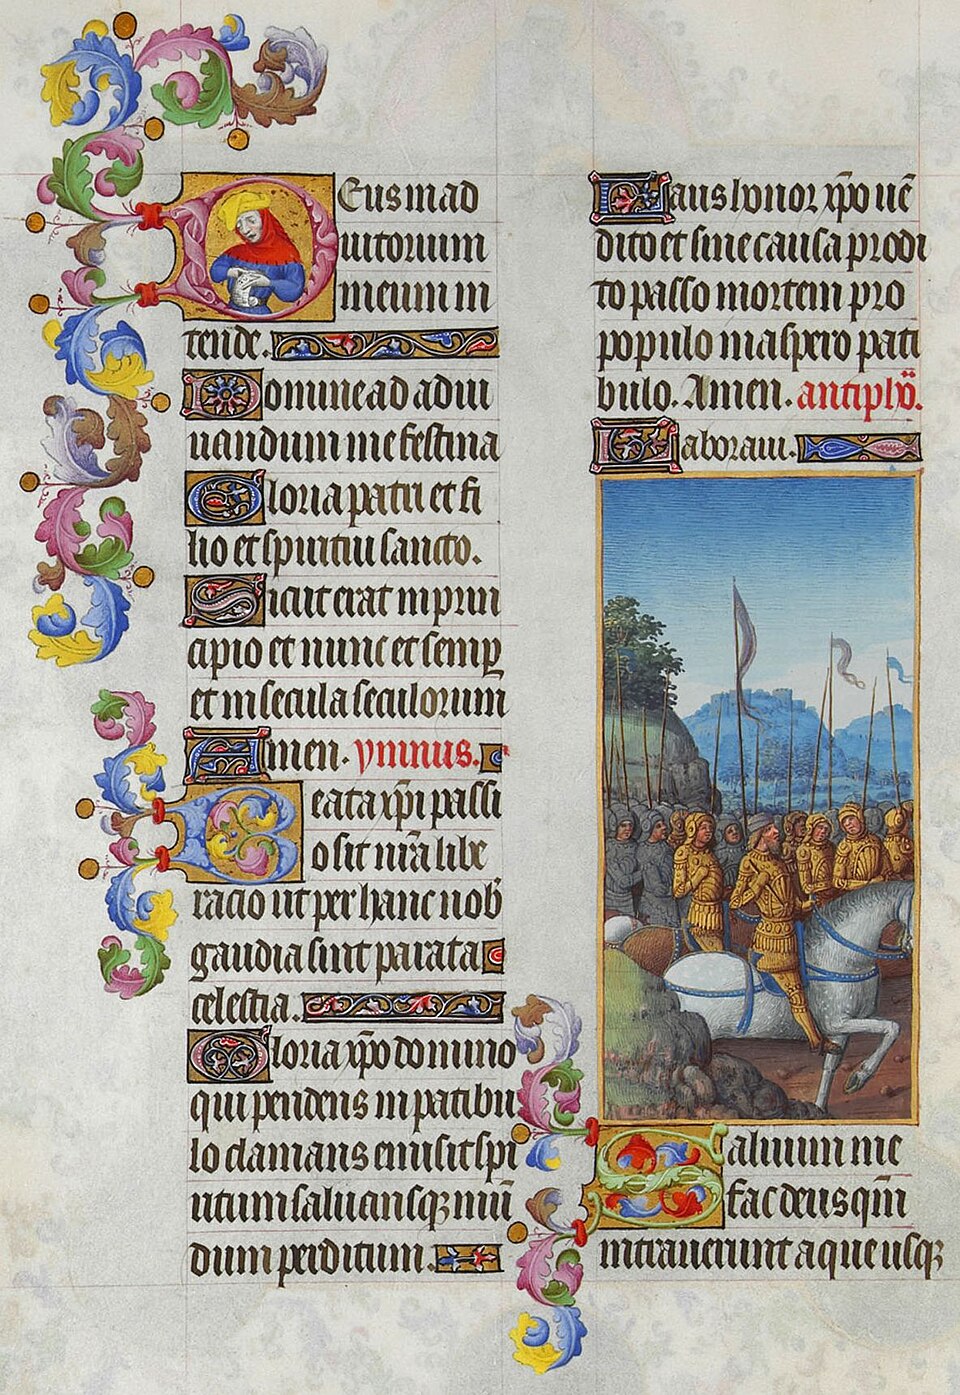 Deus in ad
iutorium
meum in
tende.
Domine ad adiu
uandum me festina
Gloria patri et fi
lio et spiritui sancto.
Sicut erat in prin
cipio et nunc et semꝑ
et in secula seculorum
Amen. ymnus.
Beata xp̄i passi
o sit nr̄a libe
racio ut per hanc nob̄
gaudia sint parata
celestia.
Gloria xp̄o domino
qui pendens in patibu
lo clamans emisit spi
ritum saluansqꝫ mū
dum perditum.
Laus honor xp̄o uē
dito et sine causa prodi
to passo mortem pro
populo in aspero pati
bulo. Amen. antiph̄.
Laboraui.
Saluum me
fac deus qm̄
intrauerunt aque usqꝫ